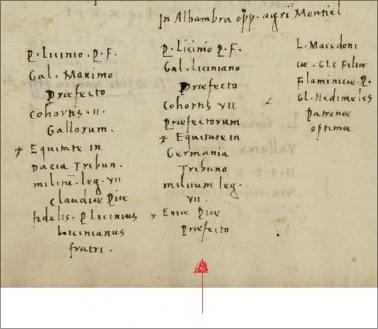 In Alhambra opp. agri Montiel.
P. Licinio. P. F.
Gal. Maximo
Præfecto
cohortis. II.
Gallorum.
Equitate in
Dacia Tribun.
milit. leg. VII
claudiæ Piæ
fidelis. P. Licinius
Licinianus
fratri.
P. Licinio P. F.
Gal. Liciniano
Præfecto
cohortis VII
Præfectorum
Equitate in
Germania
Tribuno
militum leg.
VII.
Piæ
Præfecto
L. Macedoni
cæ. C. l. c Filiæ
Flaminicæ. P.
Gl. Hedimeles
Patronæ
optimæ